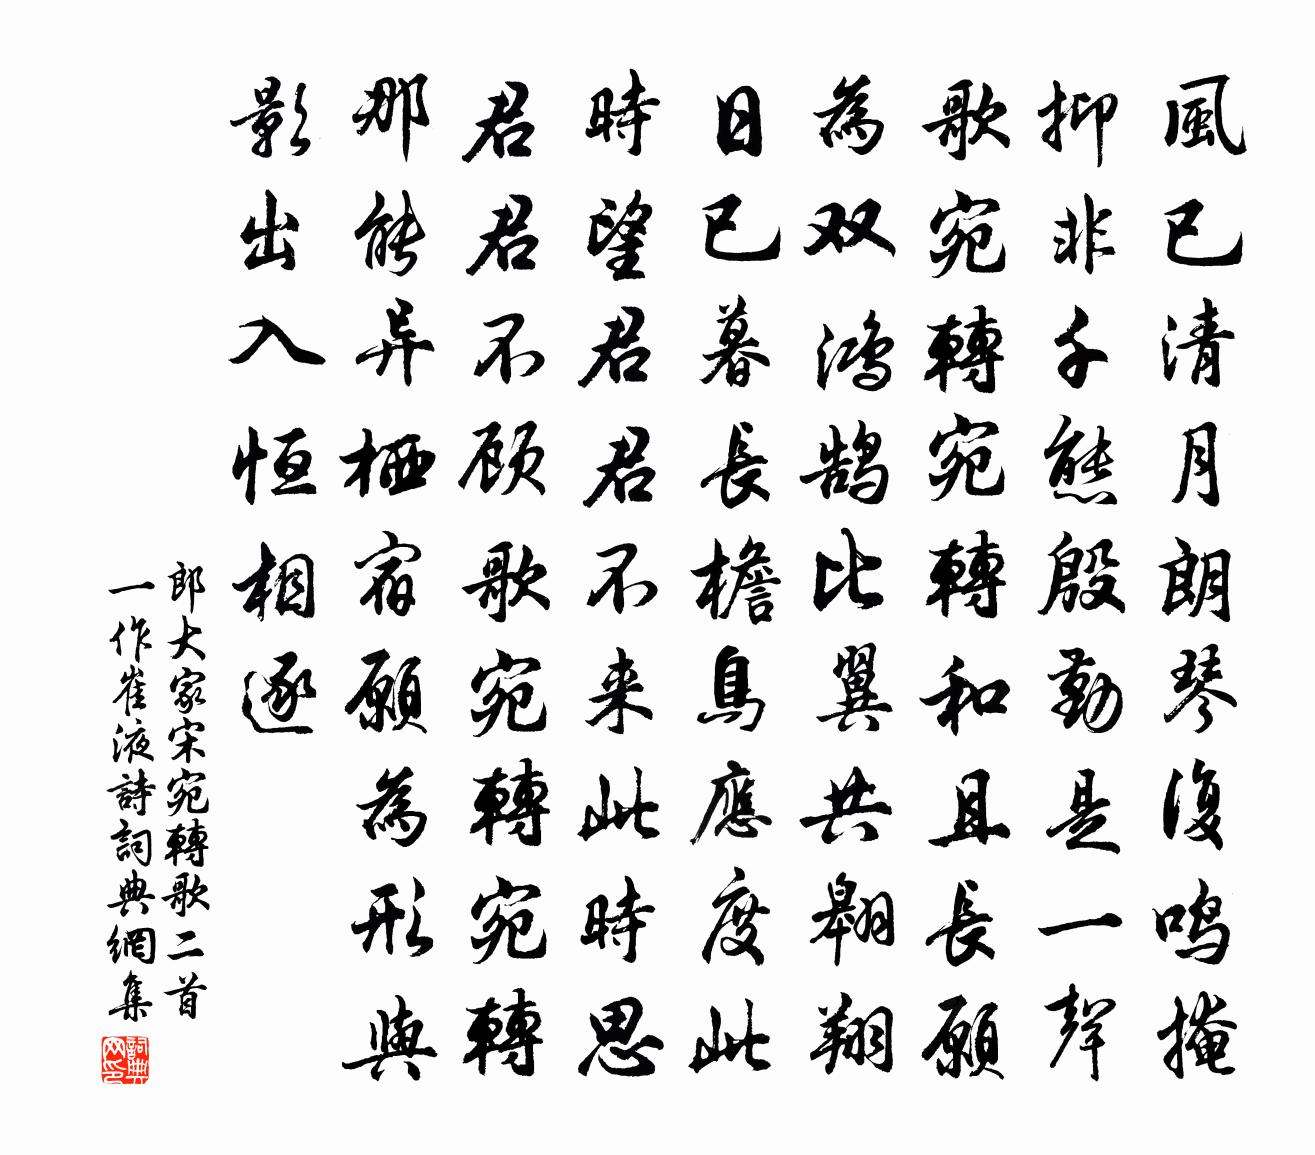 風已清月朗琴復鸣掩
抑非千熊殷勤是一聲
歌宛轉宛轉和且長願
為双鸿鹄比翼共翱翔
日已暮長檐鳥應度此
時望君君不来此時思
君君不顾歌宛轉宛轉
那能异栖宿願為形與
影出入恒相逐
郎大家宋宛轉歌二首
一作崔液詩詞典網集
詞典网印